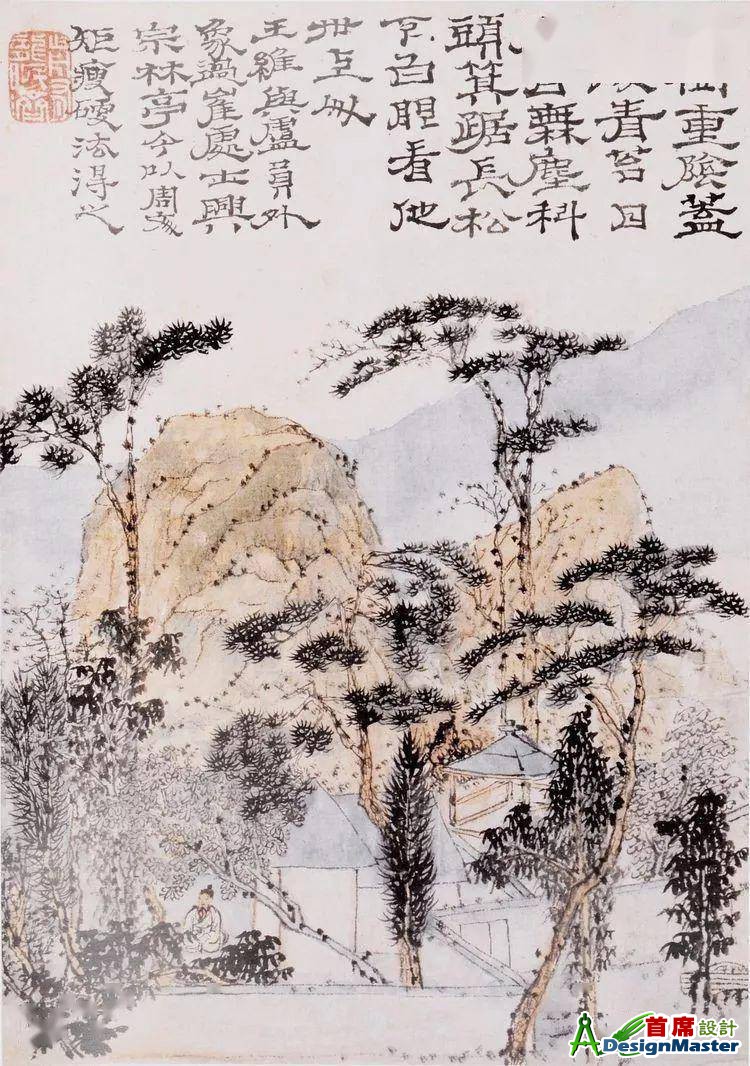 重陰蓋
青苔日
無塵科
頭箕踞長松
下白眼看他
世上人
王維與盧員外
象過崔處士興
宗林亭今以周文
矩瘦硬法得之
首席設計
ADesignMaster